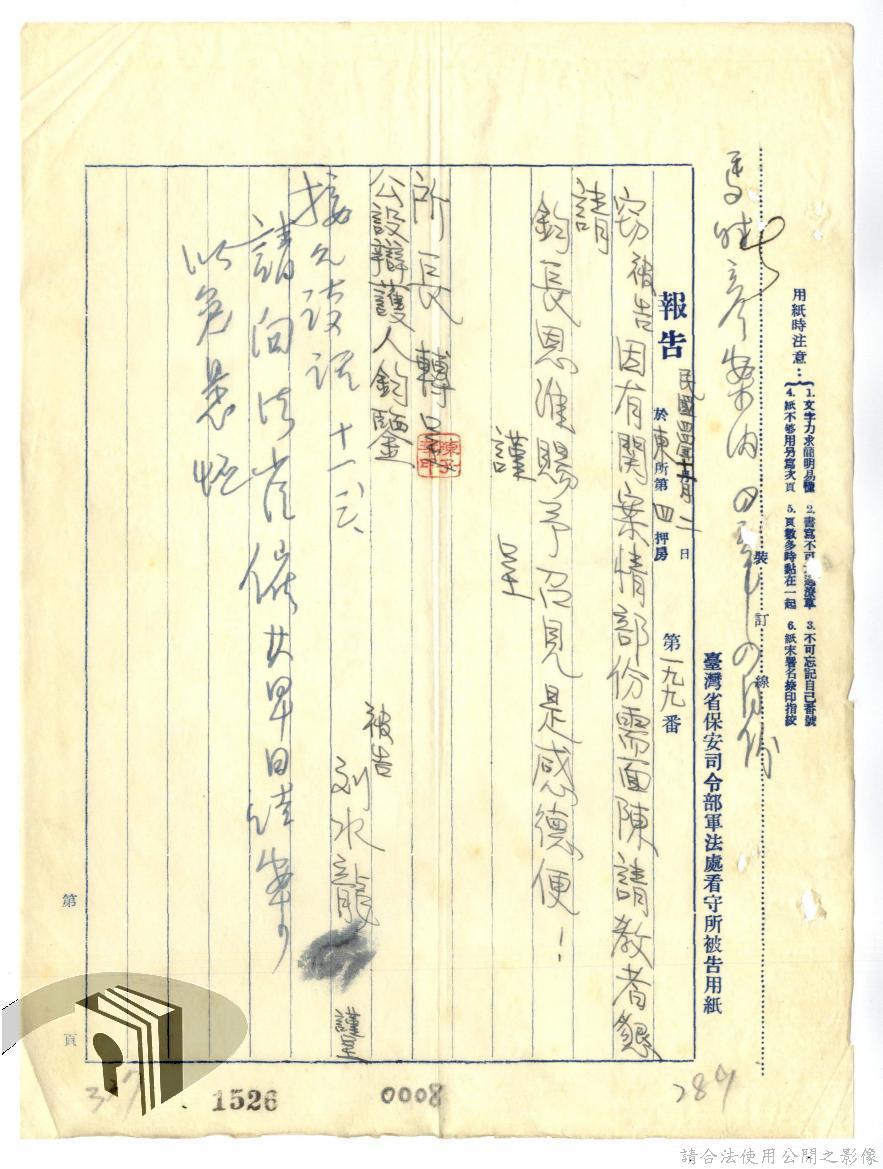 用紙時注意：
1. 文字力求簡明易懂 2. 書寫不可潦草 3. 不可忘記自己番號
4. 紙不够用另寫次頁 5. 頁數多時黏在一起 6. 紙末署名捺印指紋
裝訂線
臺灣省保安司令部軍法處看守所被告用紙
報告
民國四四年十月二日
於東所第四押房
第一九九番
竊被告因有關案情部份需面陳請教者懇
請
鈞長恩准賜予召見是感德便！
謹呈
所長轉呈
公設辯護人鈞鑒
被告
劉水龍
謹呈
請向
催其早日結案
以免
第頁
1526
0008
287
請合法使用公開之影像